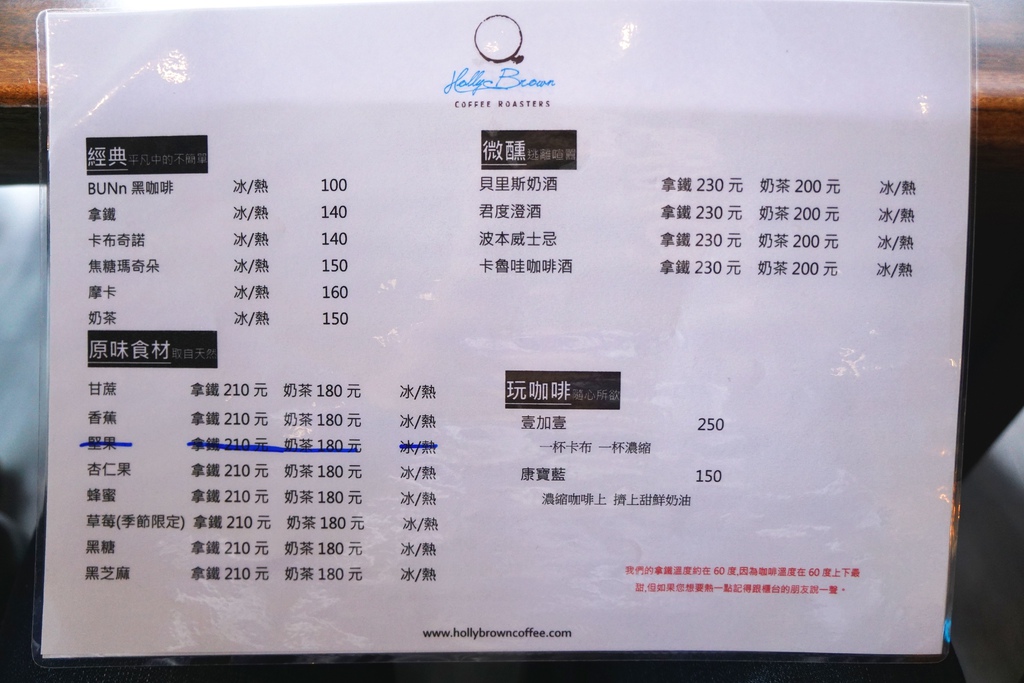 Holly Brown
COFFEE ROASTERS
經典 平凡中的不簡單
BUNn 黑咖啡 冰/熱 100
拿鐵 冰/熱 140
卡布奇諾 冰/熱 140
焦糖瑪奇朵 冰/熱 150
摩卡 冰/熱 160
奶茶 冰/熱 150
原味食材 取自天然
甘蔗 拿鐵 210 元 奶茶 180 元 冰/熱
香蕉 拿鐵 210 元 奶茶 180 元 冰/熱
堅果 拿鐵 210 元 奶茶 180 元 冰/熱
杏仁果 拿鐵 210 元 奶茶 180 元 冰/熱
蜂蜜 拿鐵 210 元 奶茶 180 元 冰/熱
草莓(季節限定) 拿鐵 210 元 奶茶 180 元 冰/熱
黑糖 拿鐵 210 元 奶茶 180 元 冰/熱
黑芝麻 拿鐵 210 元 奶茶 180 元 冰/熱
微醺 逃離喧囂
貝里斯奶酒 拿鐵 230 元 奶茶 200 元 冰/熱
君度澄酒 拿鐵 230 元 奶茶 200 元 冰/熱
波本威士忌 拿鐵 230 元 奶茶 200 元 冰/熱
卡魯哇咖啡酒 拿鐵 230 元 奶茶 200 元 冰/熱
玩咖啡 隨心所欲
壹加壹 250
一杯卡布 一杯濃縮
康寶藍 150
濃縮咖啡上 擠上甜鮮奶油
我們的拿鐵溫度約在 60 度,因為咖啡溫度在 60 度上下最
甜,但如果您想要熱一點記得跟櫃台的朋友說一聲。
www.hollybrowncoffee.com